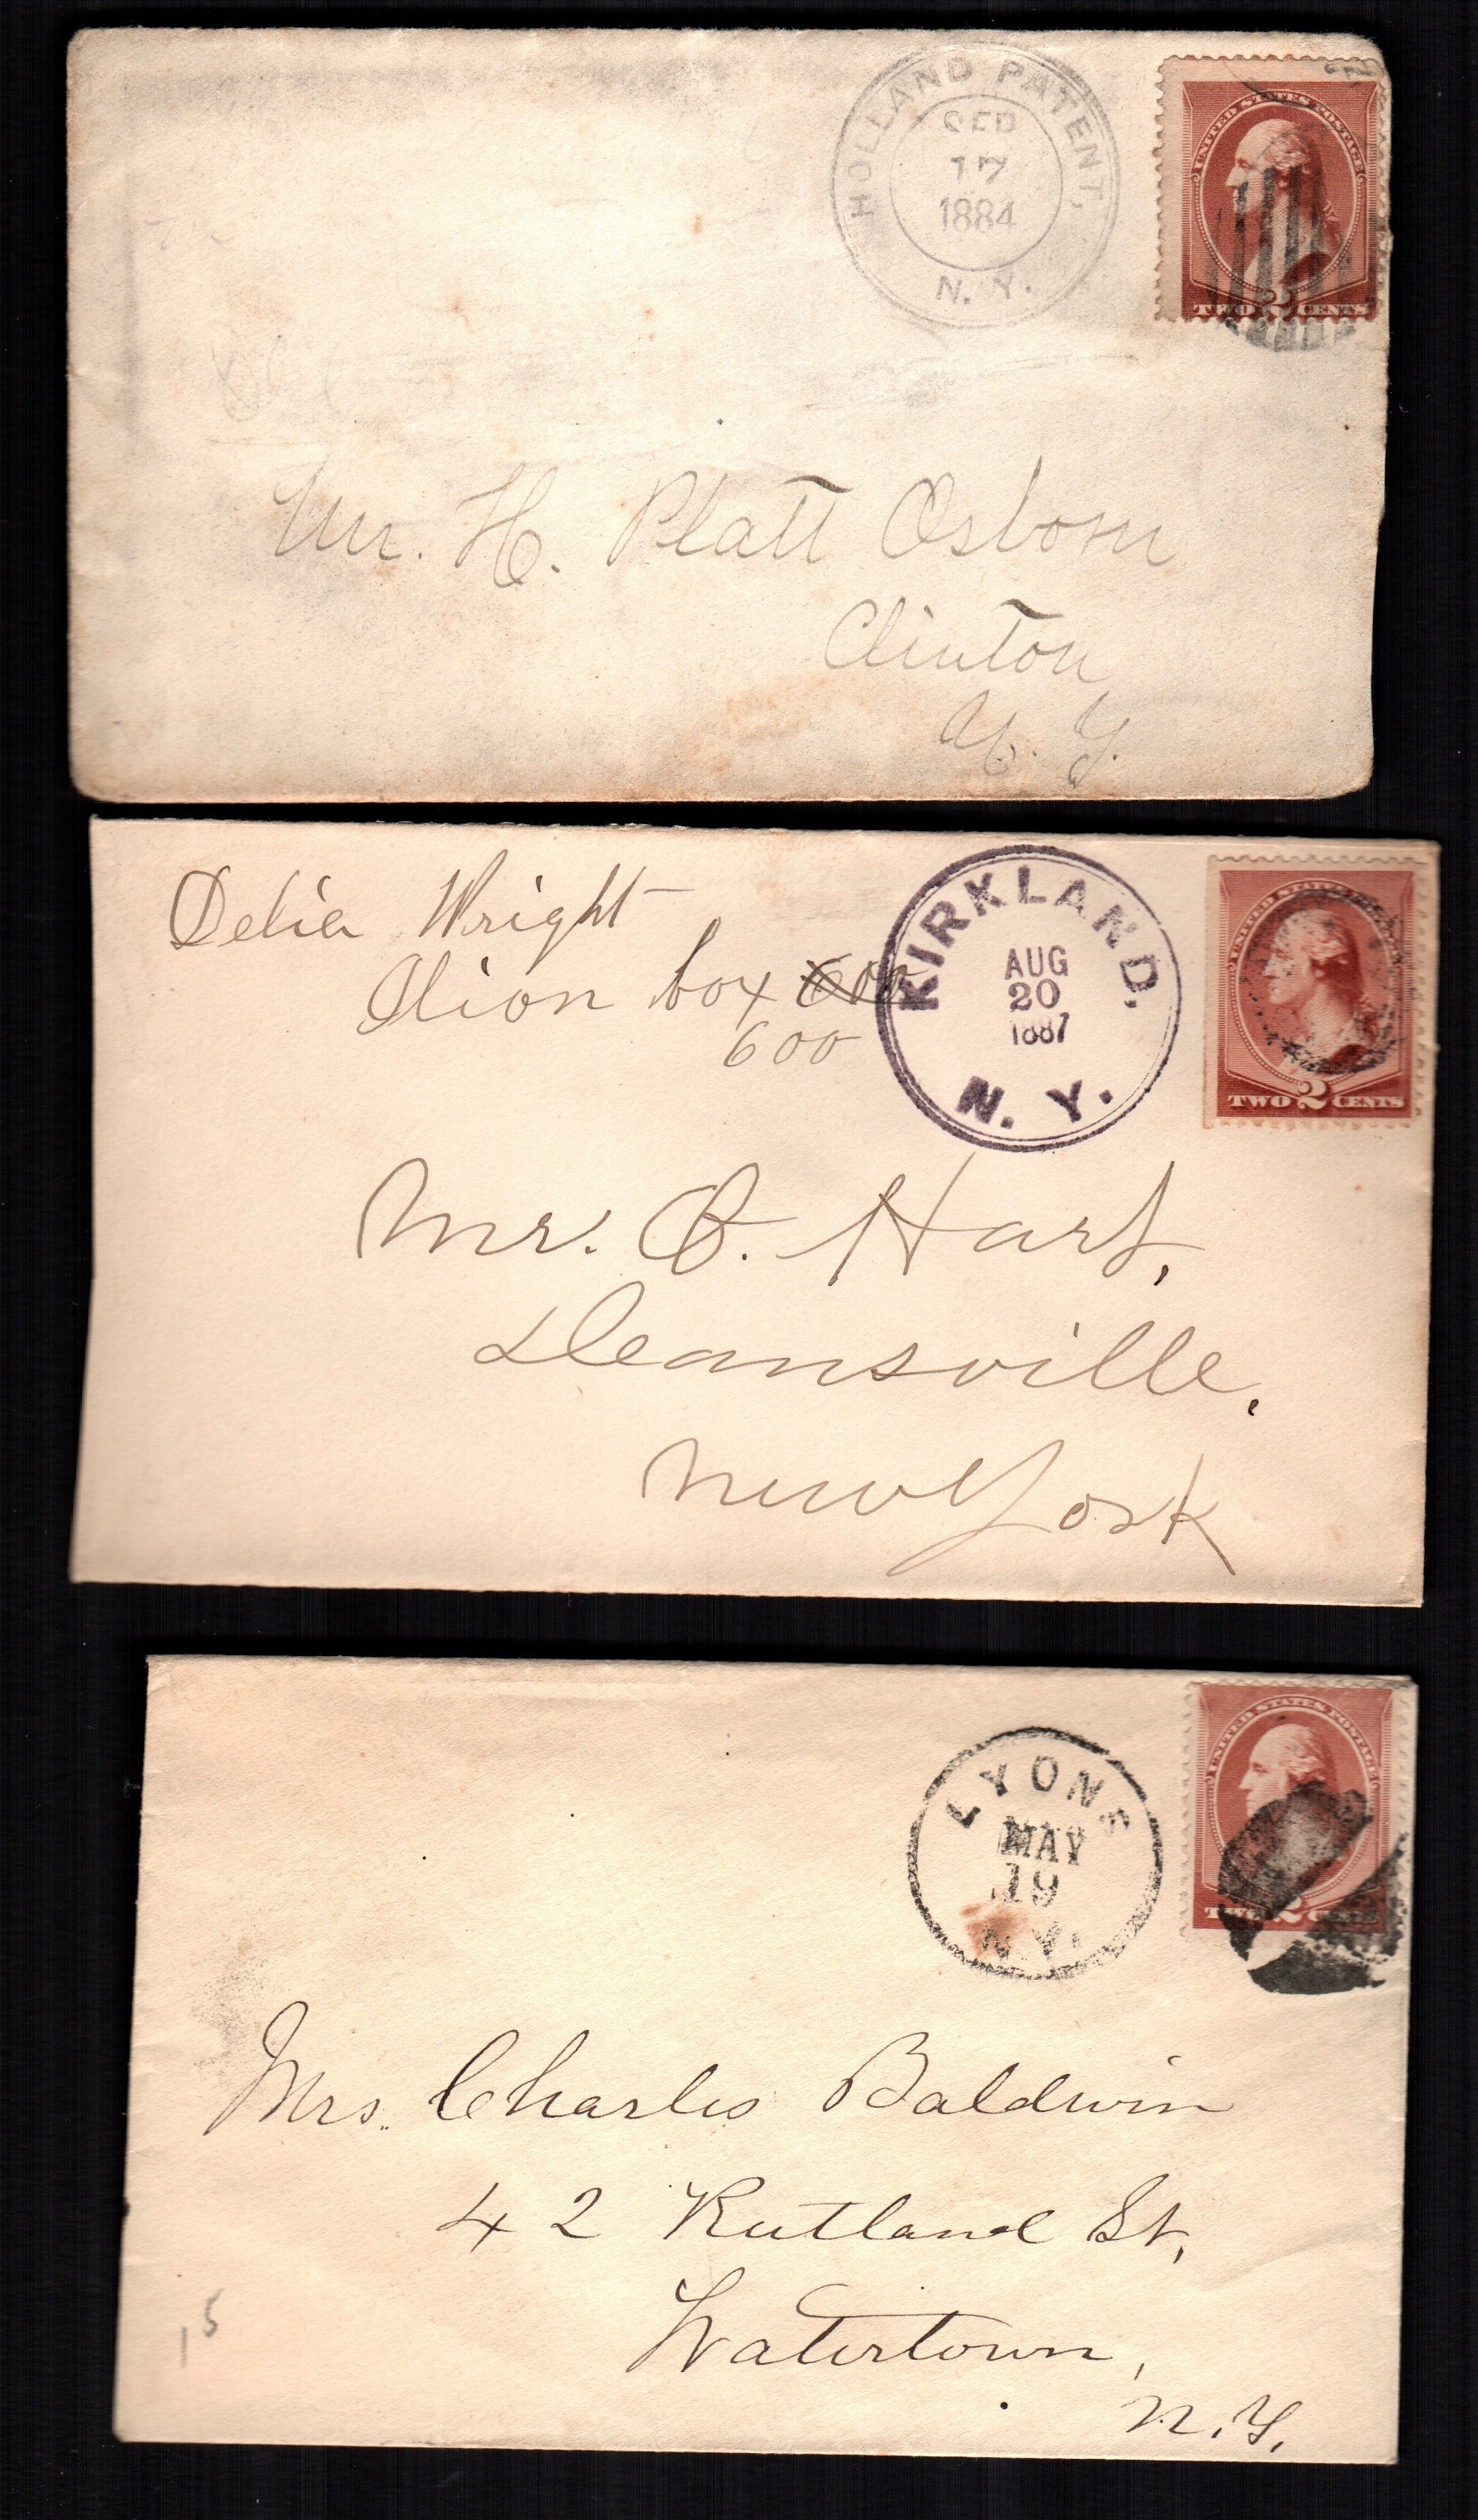 HOLLAND PATENT,
SEP
17
1884
N. Y.
UNITED STATES POSTAGE
TWO 2 CENTS
Mr. H. Platt Osborn
Clinton
N. Y.
Delia Wright
Ilion box 600
600
KIRKLAND,
AUG
20
1887
N. Y.
UNITED STATES POSTAGE
TWO 2 CENTS
Mr. O. Hart,
Deansville,
New York
LYONS
MAY
19
N.Y.
UNITED STATES POSTAGE
TWO 2 CENTS
Mrs. Charles Baldwin
42 Rutland St,
Watertown,
N.Y.
15